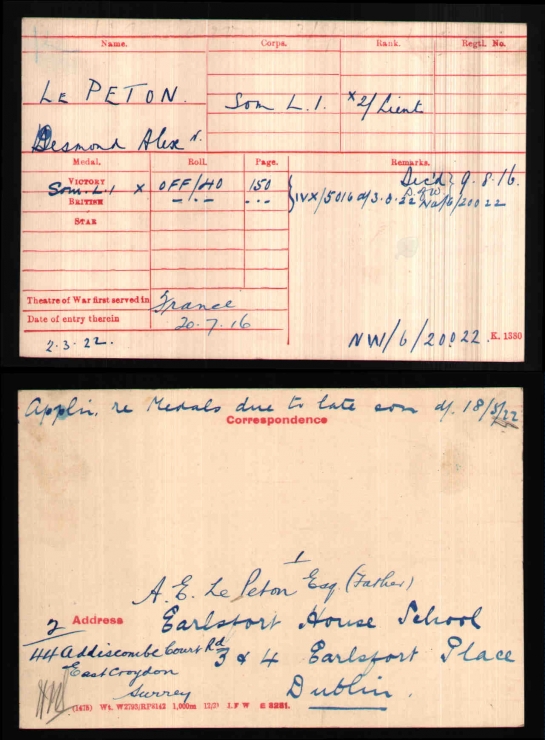 Name. Corps. Rank. Regtl. No.
LE PETON. Som L.I. x 2/Lieut
Desmond Alex r.
Medal. Roll. Page. Remarks.
VICTORY Som. L.I x OFF/40 150 Died 9.8.16.
BRITISH -.- ... IVX/5016 d/3.8.22 NW/6/20022
STAR
Theatre of War first served in France
Date of entry therein 20.7.16
2.3.22. NW/6/20022. K. 1380
Applin. re Medals due to late son d/. 18/5/22
Correspondence
1
A. E. Le Peton Esq. (Father)
2 Address Earlsfort House School
44 Addiscombe Court Rd 3 & 4 Earlsfort Place
East Croydon
Surrey Dublin.
(1475) Wt. W3793/RP8142 1,000m 12/21 J.F W E 3221.